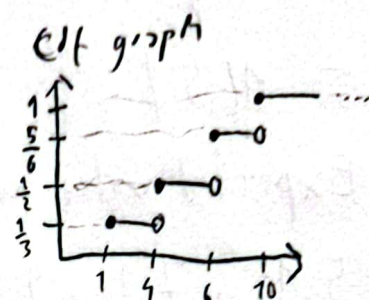 Cdf graph
1
5/6
1/2
1/3
1 4 6 10